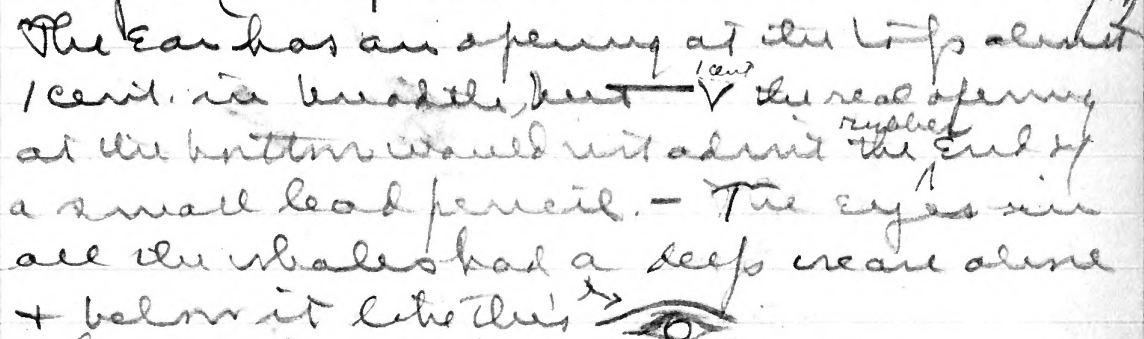 The Ear has an opening at the top about
1 cent. in breadth, but — 1 cent the real opening
at the bottom would not admit the rubber End of
a small lead pencil. — The eyes in
all the whales had a deep crease above
+ below it like this